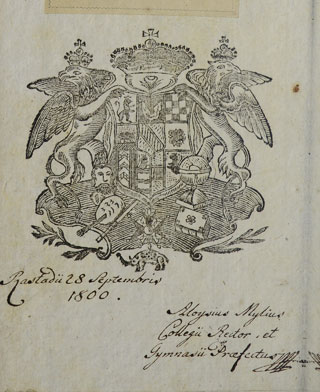 Rastadii 28 Septembris
1800.
Aloysius Mylius
Collegii Rector, et
Gymnasii Præfectus